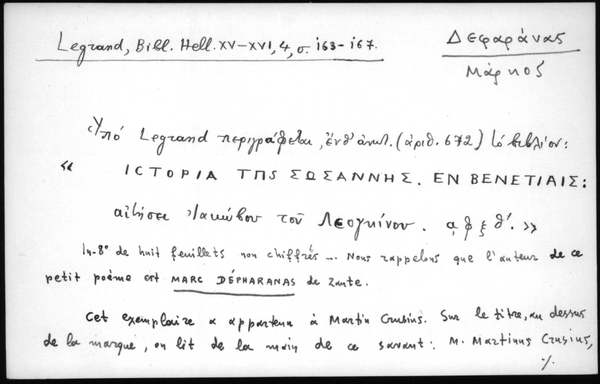 Legrand, Bibl. Hell. XV-XVI, 4, σ. 163-167.
Δεφαράνας
Μάρκος
Ὑπό Legrand περιγράφεται, ἐνθ' ἀνωτ. (ἀριθ. 672) τό βιβλίον:
« ΙϹΤΟΡΙΑ ΤΠϹ ΣΩΣΑΝΝΗΣ. ΕΝ ΒΕΝΕΤΙΑΙΣ:
αἰτήσει Ἰακώβου τοῦ Λεογκίνου. ͵αφξθ'. »
In-8° de huit feuillets non chiffrés ... Nous rappelons que l'auteur de ce
petit poème est MARC DÉPHARANAS de Zante.
Cet exemplaire a appartenu à Martin Crusius. Sur le titre, au dessus
de la marque, on lit de la main de ce savant: M. Martinus Crusius,
./.